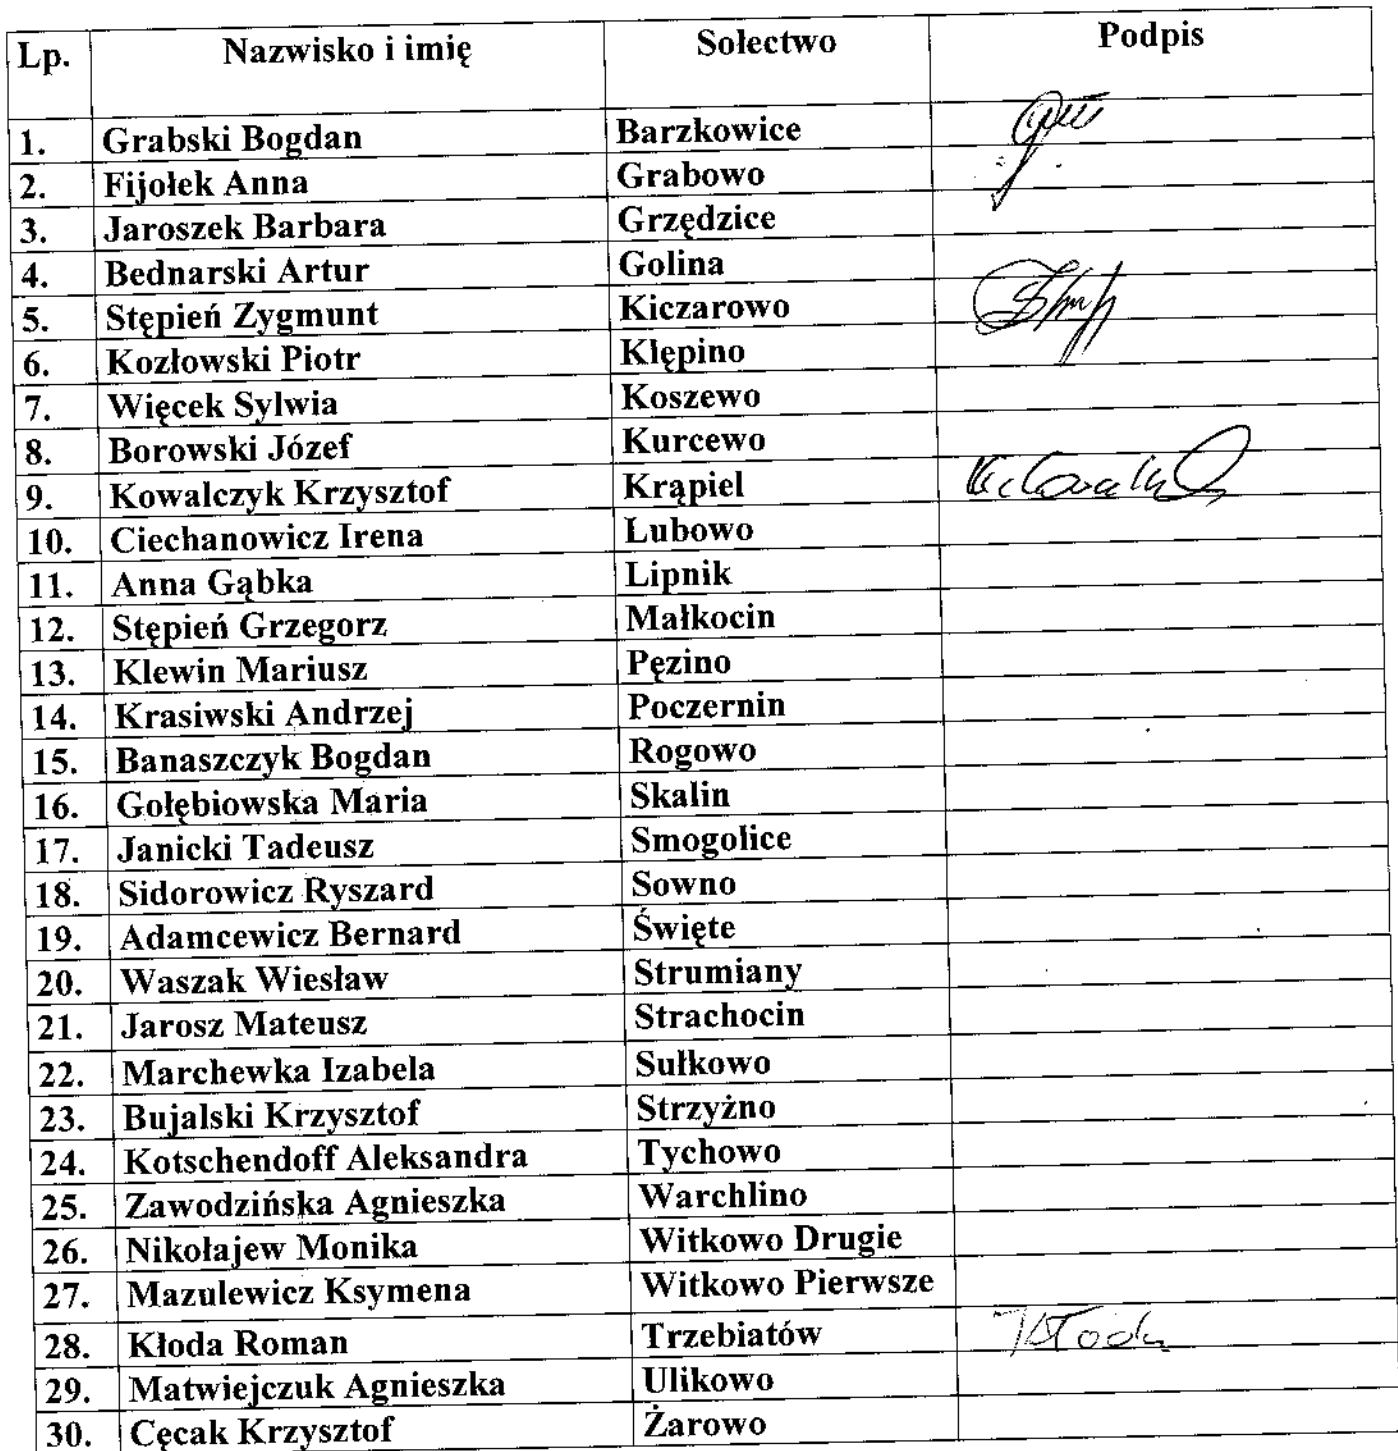 Lp. Nazwisko i imię Sołectwo Podpis
1. Grabski Bogdan Barzkowice
2. Fijołek Anna Grabowo
3. Jaroszek Barbara Grzędzice
4. Bednarski Artur Golina
5. Stępień Zygmunt Kiczarowo
6. Kozłowski Piotr Klępino
7. Więcek Sylwia Koszewo
8. Borowski Józef Kurcewo
9. Kowalczyk Krzysztof Krąpiel
10. Ciechanowicz Irena Lubowo
11. Anna Gąbka Lipnik
12. Stępień Grzegorz Małkocin
13. Klewin Mariusz Pęzino
14. Krasiwski Andrzej Poczernin
15. Banaszczyk Bogdan Rogowo
16. Gołębiowska Maria Skalin
17. Janicki Tadeusz Smogolice
18. Sidorowicz Ryszard Sowno
19. Adamcewicz Bernard Święte
20. Waszak Wiesław Strumiany
21. Jarosz Mateusz Strachocin
22. Marchewka Izabela Sułkowo
23. Bujalski Krzysztof Strzyżno
24. Kotschendoff Aleksandra Tychowo
25. Zawodzińska Agnieszka Warchlino
26. Nikołajew Monika Witkowo Drugie
27. Mazulewicz Ksymena Witkowo Pierwsze
28. Kłoda Roman Trzebiatów
29. Matwiejczuk Agnieszka Ulikowo
30. Cęcak Krzysztof Żarowo